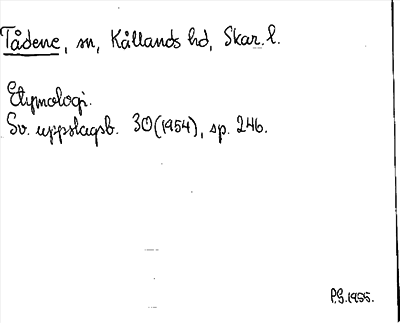 Tådene, sn, Kållands hd, Skar. l.
Etymologi.
Sv. uppslagsb. 30(1954), sp. 246.
P.G.1955.